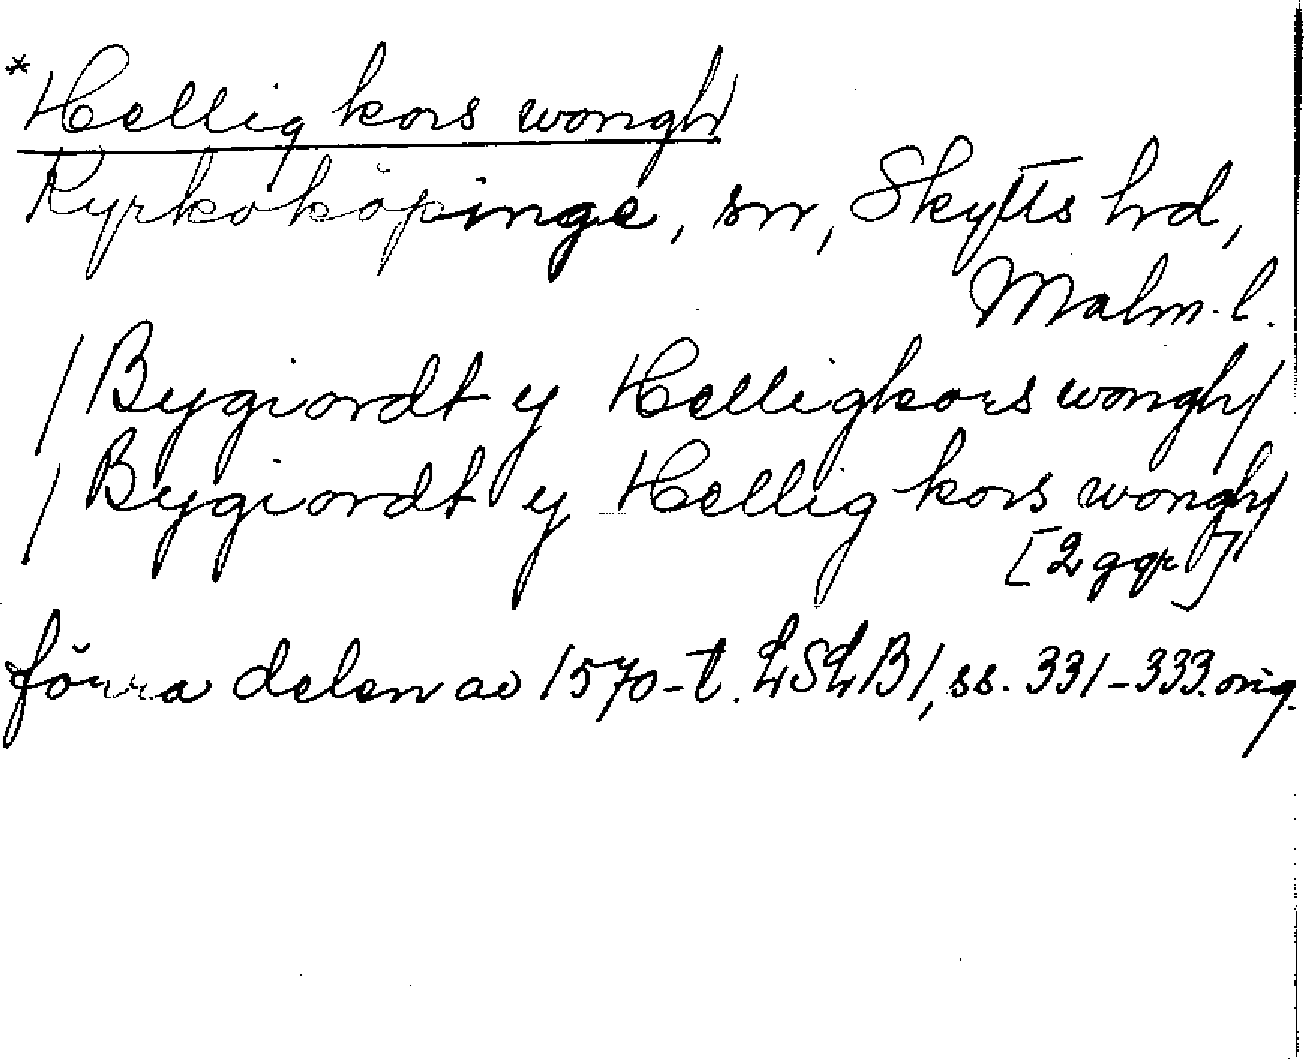 *Hellig kors wongh
Kyrkoköpinge, sn, Skytts hd,
Malm. l.
/Bygiordt y Helligkors wongh/
/Bygiordt y Hellig kors wongh/
[2 ggr]
förra delen av 1570-t. LSLB1, ss. 331-333. orig.